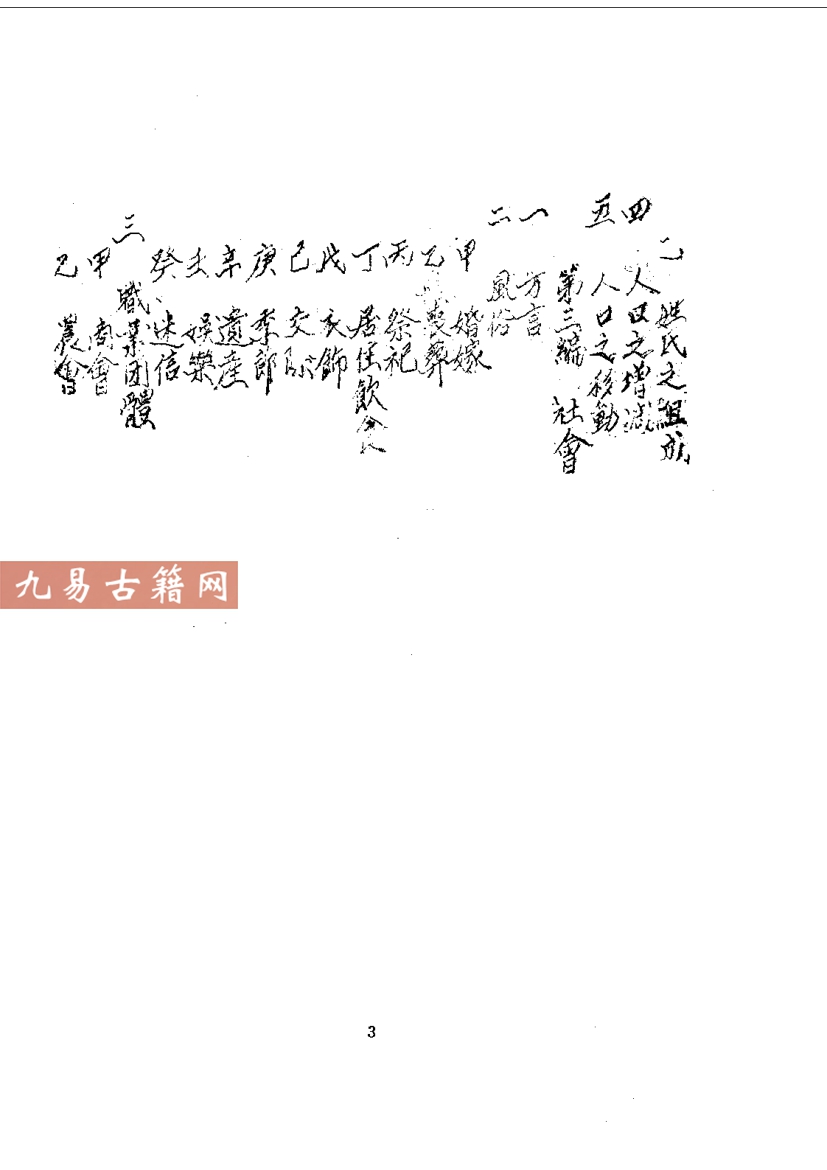 乙 姓氏之組成
四 人口之增減
五 人口之移動
第三編 社會
一 方言
二 風俗
甲 婚嫁
乙 喪葬
丙 祭祀
丁 居住飲食
戊 衣飾
己 交際
庚 季節
辛 遺產
壬 娛樂
癸 迷信
三 職業团體
甲 商會
乙 農會
九易古籍网
3